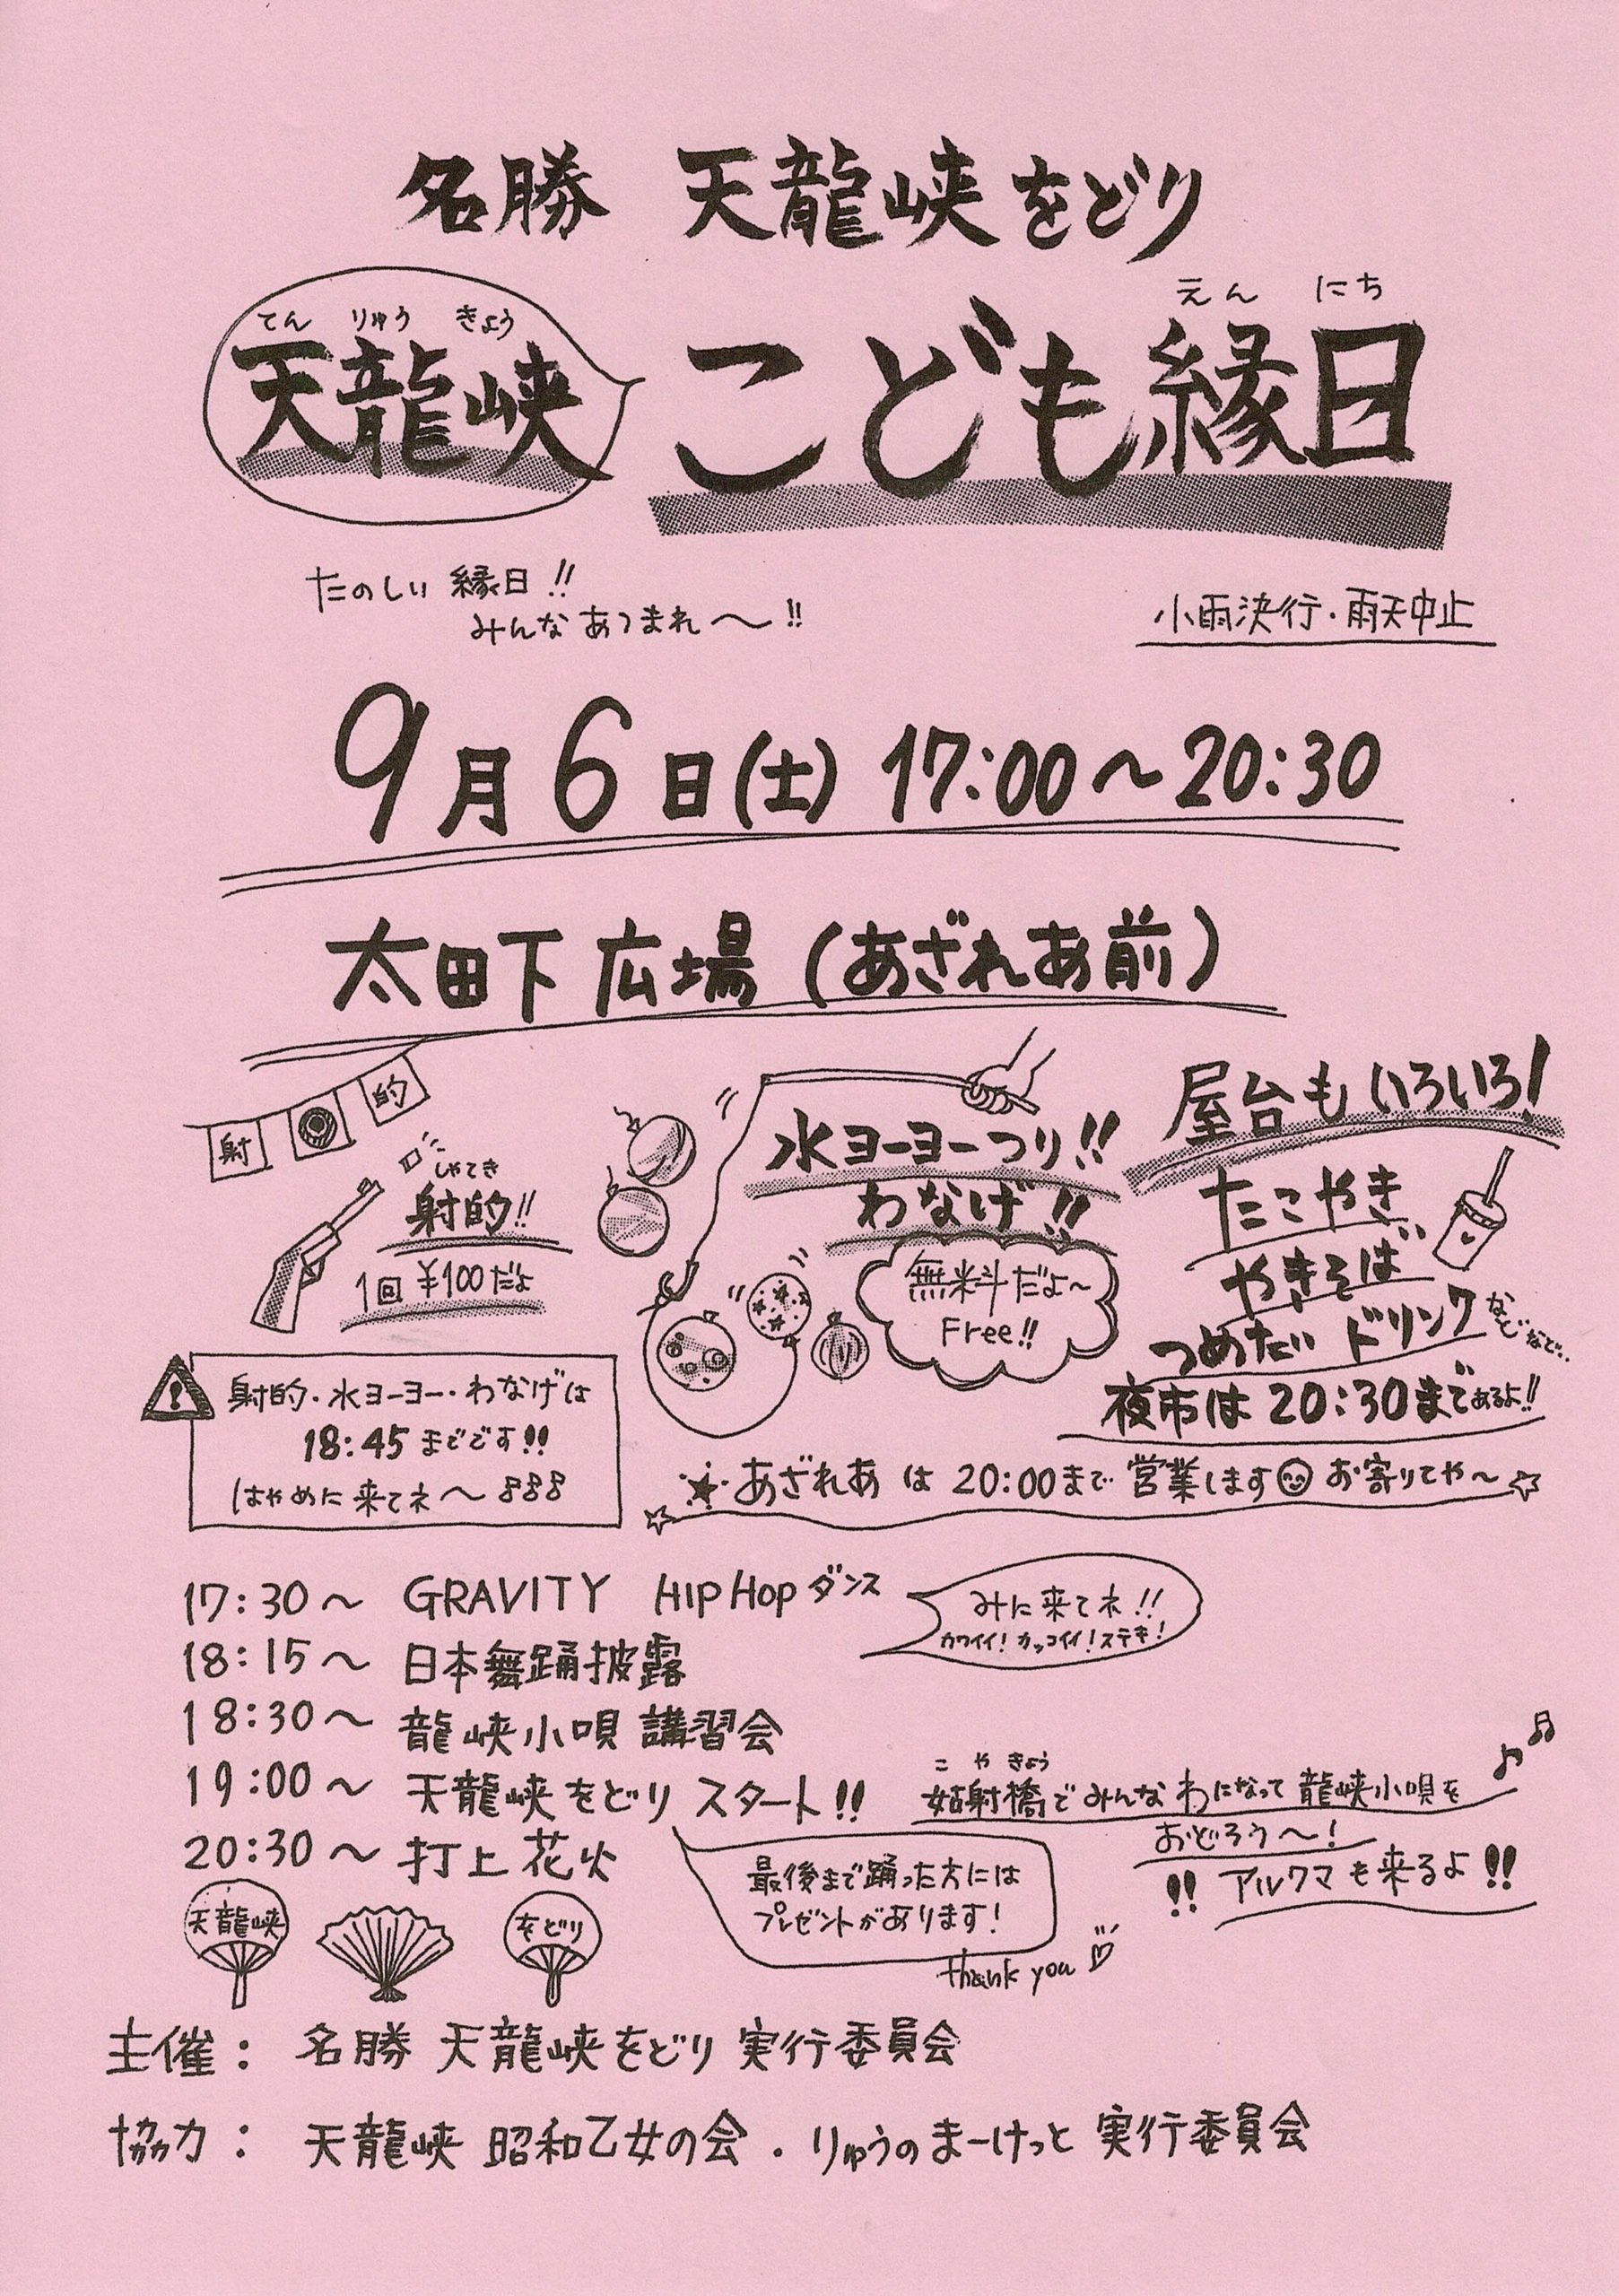 名勝 天龍峡をどり
てん りゅう きょう
天龍峡
えん にち
こども縁日
たのしい縁日!!
みんなあつまれ〜!!
小雨決行・雨天中止
9月6日(土) 17:00〜20:30
太田下広場(あざれあ前)
射 的
しゃてき
射的!!
1回¥100だよ
水ヨーヨーつり!!
わなげ!!
無料だよ〜
Free!!
屋台もいろいろ!
たこやき
やきそば
つめたいドリンク などなど...
夜市は20:30まであるよ!!
射的・水ヨーヨー・わなげは
18:45までです!!
はやめに来てネ〜
あざれあは20:00まで営業します お寄りてや〜
17:30〜 GRAVITY HIP Hopダンス
みに来てネ!!
カワイイ!カッコイイ!ステキ!
18:15〜 日本舞踊披露
18:30〜 龍峡小唄 講習会
19:00〜 天龍峡をどりスタート!!
こ や きょう
姑射橋でみんなわになって龍峡小唄を
おどろう〜!
!! アルクマも来るよ!!
20:30〜 打上花火
最後まで踊った方には
プレゼントがあります!
thank you
天龍峡
をどり
主催: 名勝 天龍峡をどり 実行委員会
協力: 天龍峡 昭和乙女の会・りゅうのまーけっと 実行委員会